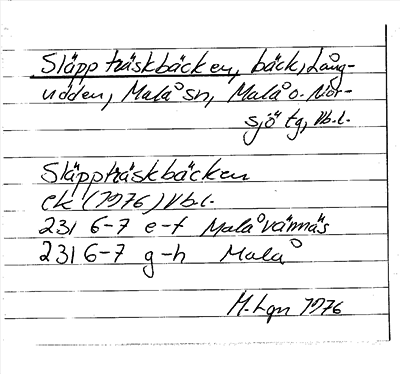 Släppträskbäcken, bäck, Lång-
udden, Malå sn, Malå o. Nor-
sjö tg, Vb.l.
Släppträskbäcken
ek (1976) Vb.l.
231 6-7 e-f Malåvännäs
231 6-7 g-h Malå
M. Lgn 1976